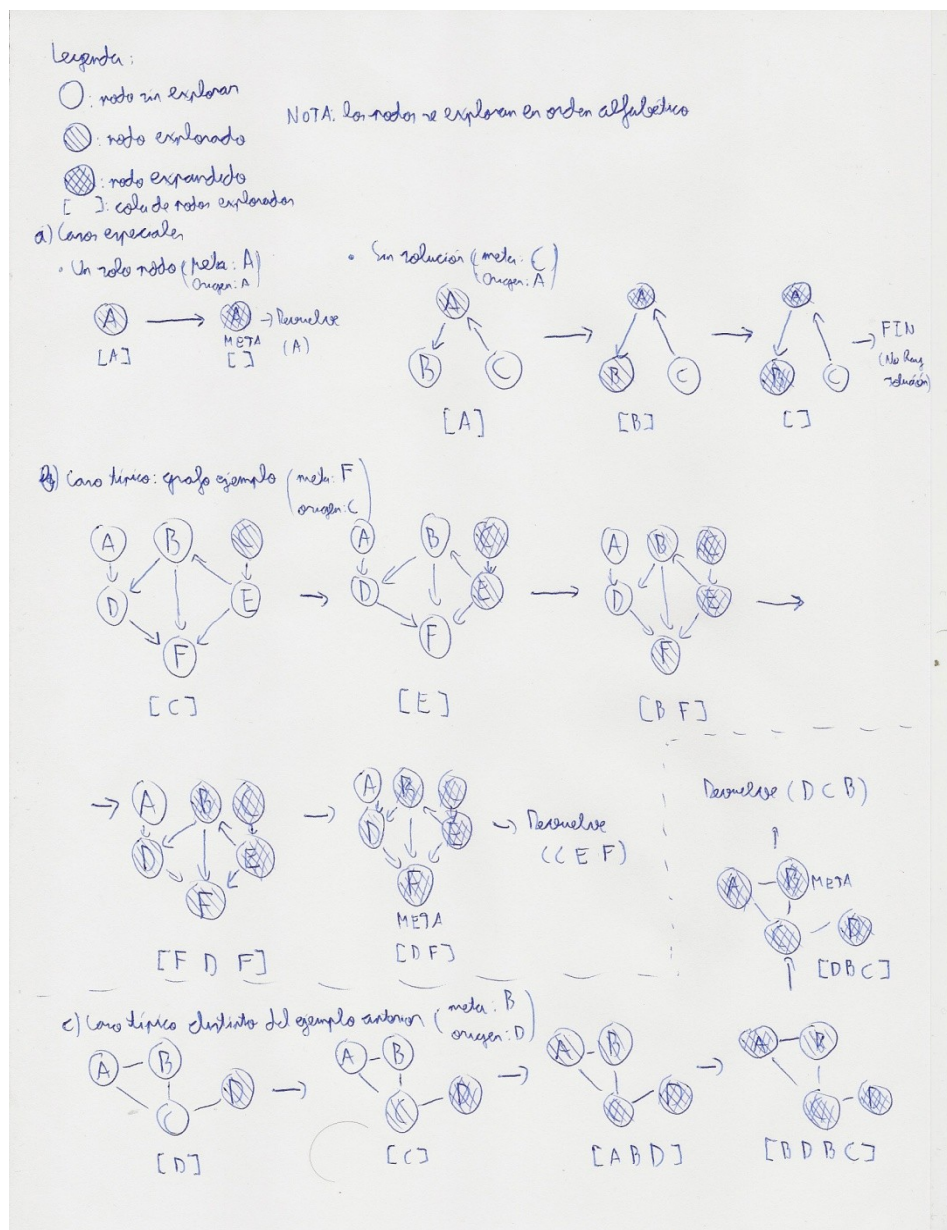 Leyenda:
: nodo sin explorar
NOTA: los nodos se exploran en orden alfabético
: nodo explorado
: nodo expandido
[ ]: cola de nodos explorados
a) Casos especiales
· Un solo nodo (meta: A
Origen: A)
A → A → Devuelve
META (A)
[A] [ ]
· Sin solución (meta: C
Origen: A)
A A A
B C B C B C
→ FIN
(No hay
solución)
[A] [B] [ ]
b) Caso típico: grafo ejemplo (meta: F
origen: C)
A B C A B C A B C
D E D E D E
F F F
[C] [E] [B F]
A B C A B C
D E D E → Devuelve
(C E F)
F F
META
[F D F] [D F]
Devuelve (D C B)
A B META
C D
[D B C]
c) Caso típico distinto del ejemplo anterior (meta: B
origen: D)
A B A B A B A B
C D C D C D C D
[D] [C] [A B D] [B D B C]